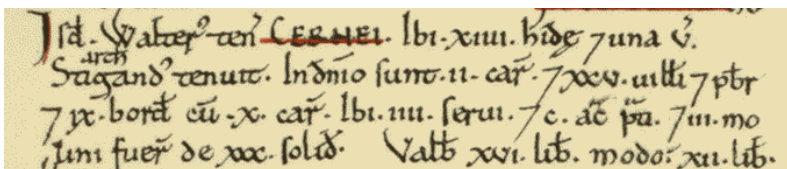 Isđ. Walterꝰ teñ CERNEI. Ibi .xiiii. hidę ⁊ una ṽ.
Stigand᾽ arch tenuit. In dñio sunt .ii. car̃. ⁊ xxv. uilłi ⁊ pƀr
⁊ ix. borđ cū .x. car̃. Ibi .iiii. serui. ⁊ c. ac̃ p̃ti. ⁊ iii. mo
lini fuer̃ de xxx. soliđ. Valƀ xvi. liƀ. modo: xii. liƀ.